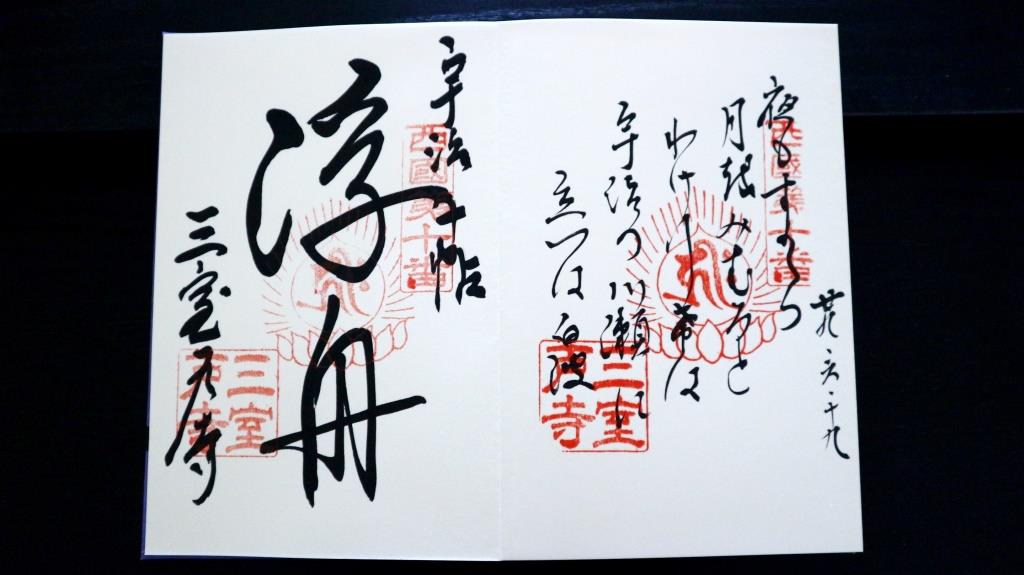 廿九・六・十九
夜もすから
月越みむろと
わけゆけは
宇治の川瀬に
立つは白波
西國第十番
三室戸寺
宇治十帖
浮舟
三室戸寺
西國第十番
三室戸寺